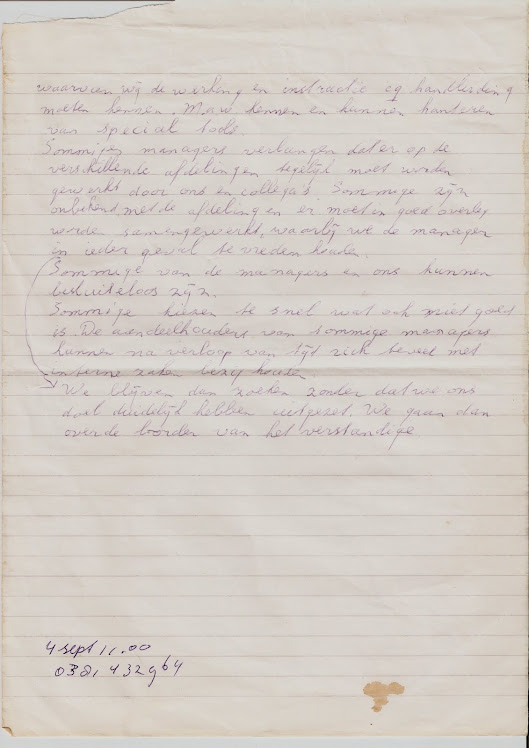 waarvan wij de werking en instructie cq handleiding
moeten kennen. M.a.w. kennen en kunnen hanteren
van special tools.
Sommige managers verlangen dat er op de
verschillende afdelingen tegelijk moet worden
gewerkt door ons en collega's. Sommige zijn
onbekend met de afdeling en er moet in goed overleg
worden samengewerkt, waarbij we de manager
in ieder geval tevreden houden.
Sommige van de managers en ons kunnen
besluiteloos zijn.
Sommige kiezen te snel wat ook niet goed
is. De aandeelhouders van sommige managers
kunnen na verloop van tijd zich teveel met
interne zaken bezig houden.
We blijven dan zoeken zonder dat we ons
doel duidelijk hebben uitgezet. We gaan dan
over de boorden van het verstandige
4 sept 11.00
038, 432964